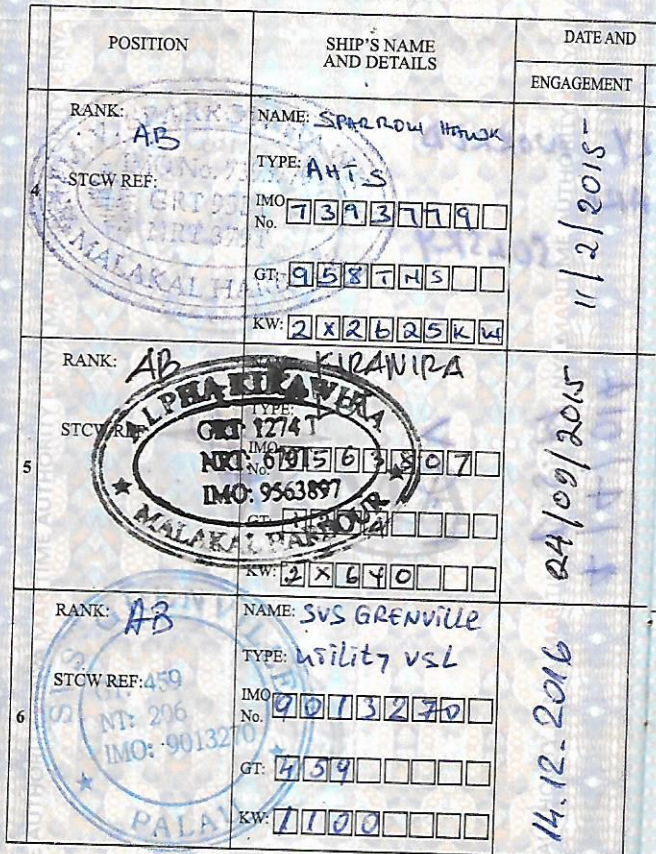 POSITION
SHIP'S NAME
AND DETAILS
DATE AND
ENGAGEMENT
4
RANK: AB
STCW REF:
MALAKAL
NAME: SPARROW HAWK
TYPE: AHTS
IMO No. 7393779
GT: 958TNS
KW: 2X2625KW
11/2/2015
5
RANK: AB
STCW
KIRAWIRA
ALPHA KIRAWIRA
TYPE:
GRT 1274 T
NRT:
IMO No.
IMO: 9563897
MALAKAL HARBOUR
GT:
KW: 2X640
24/09/2015
6
RANK: AB
STCW REF:
459
NT: 206
IMO: 9013270
PALAU
NAME: SVS GRENVILLE
TYPE: UTILITY VSL
IMO No. 9013270
GT: 459
KW: 1100
14.12.2016